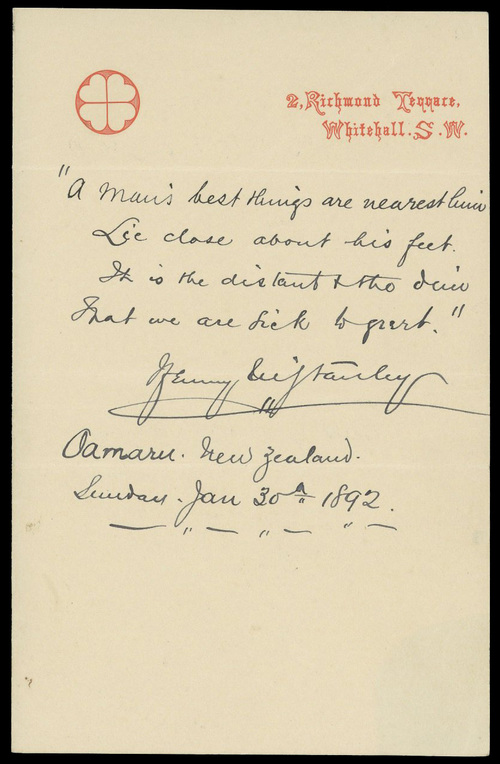 2, Richmond Terrace,
Whitehall. S. W.
"A man's best things are nearest him
Lie close about his feet.
It is the distant & the dim
That we are sick to greet."
Henry M Stanley
Oamaru. New Zealand.
Sunday. Jan 30th 1892.